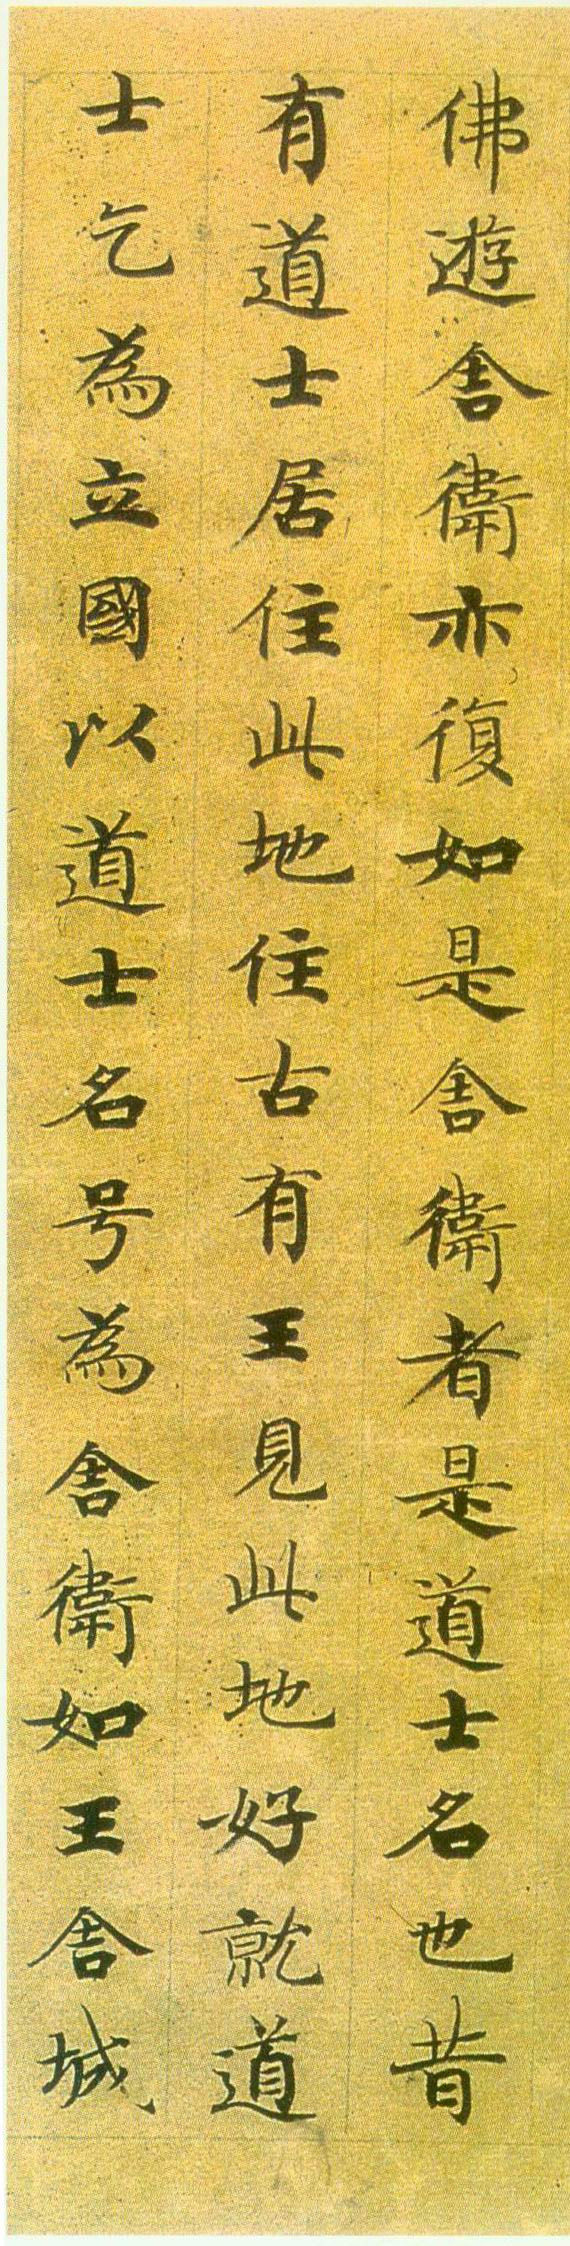 佛遊舎衛亦復如是舎衛者是道士名也昔
有道士居住此地住古有王見此地好就道
士乞為立國以道士名号為舎衛如王舎城